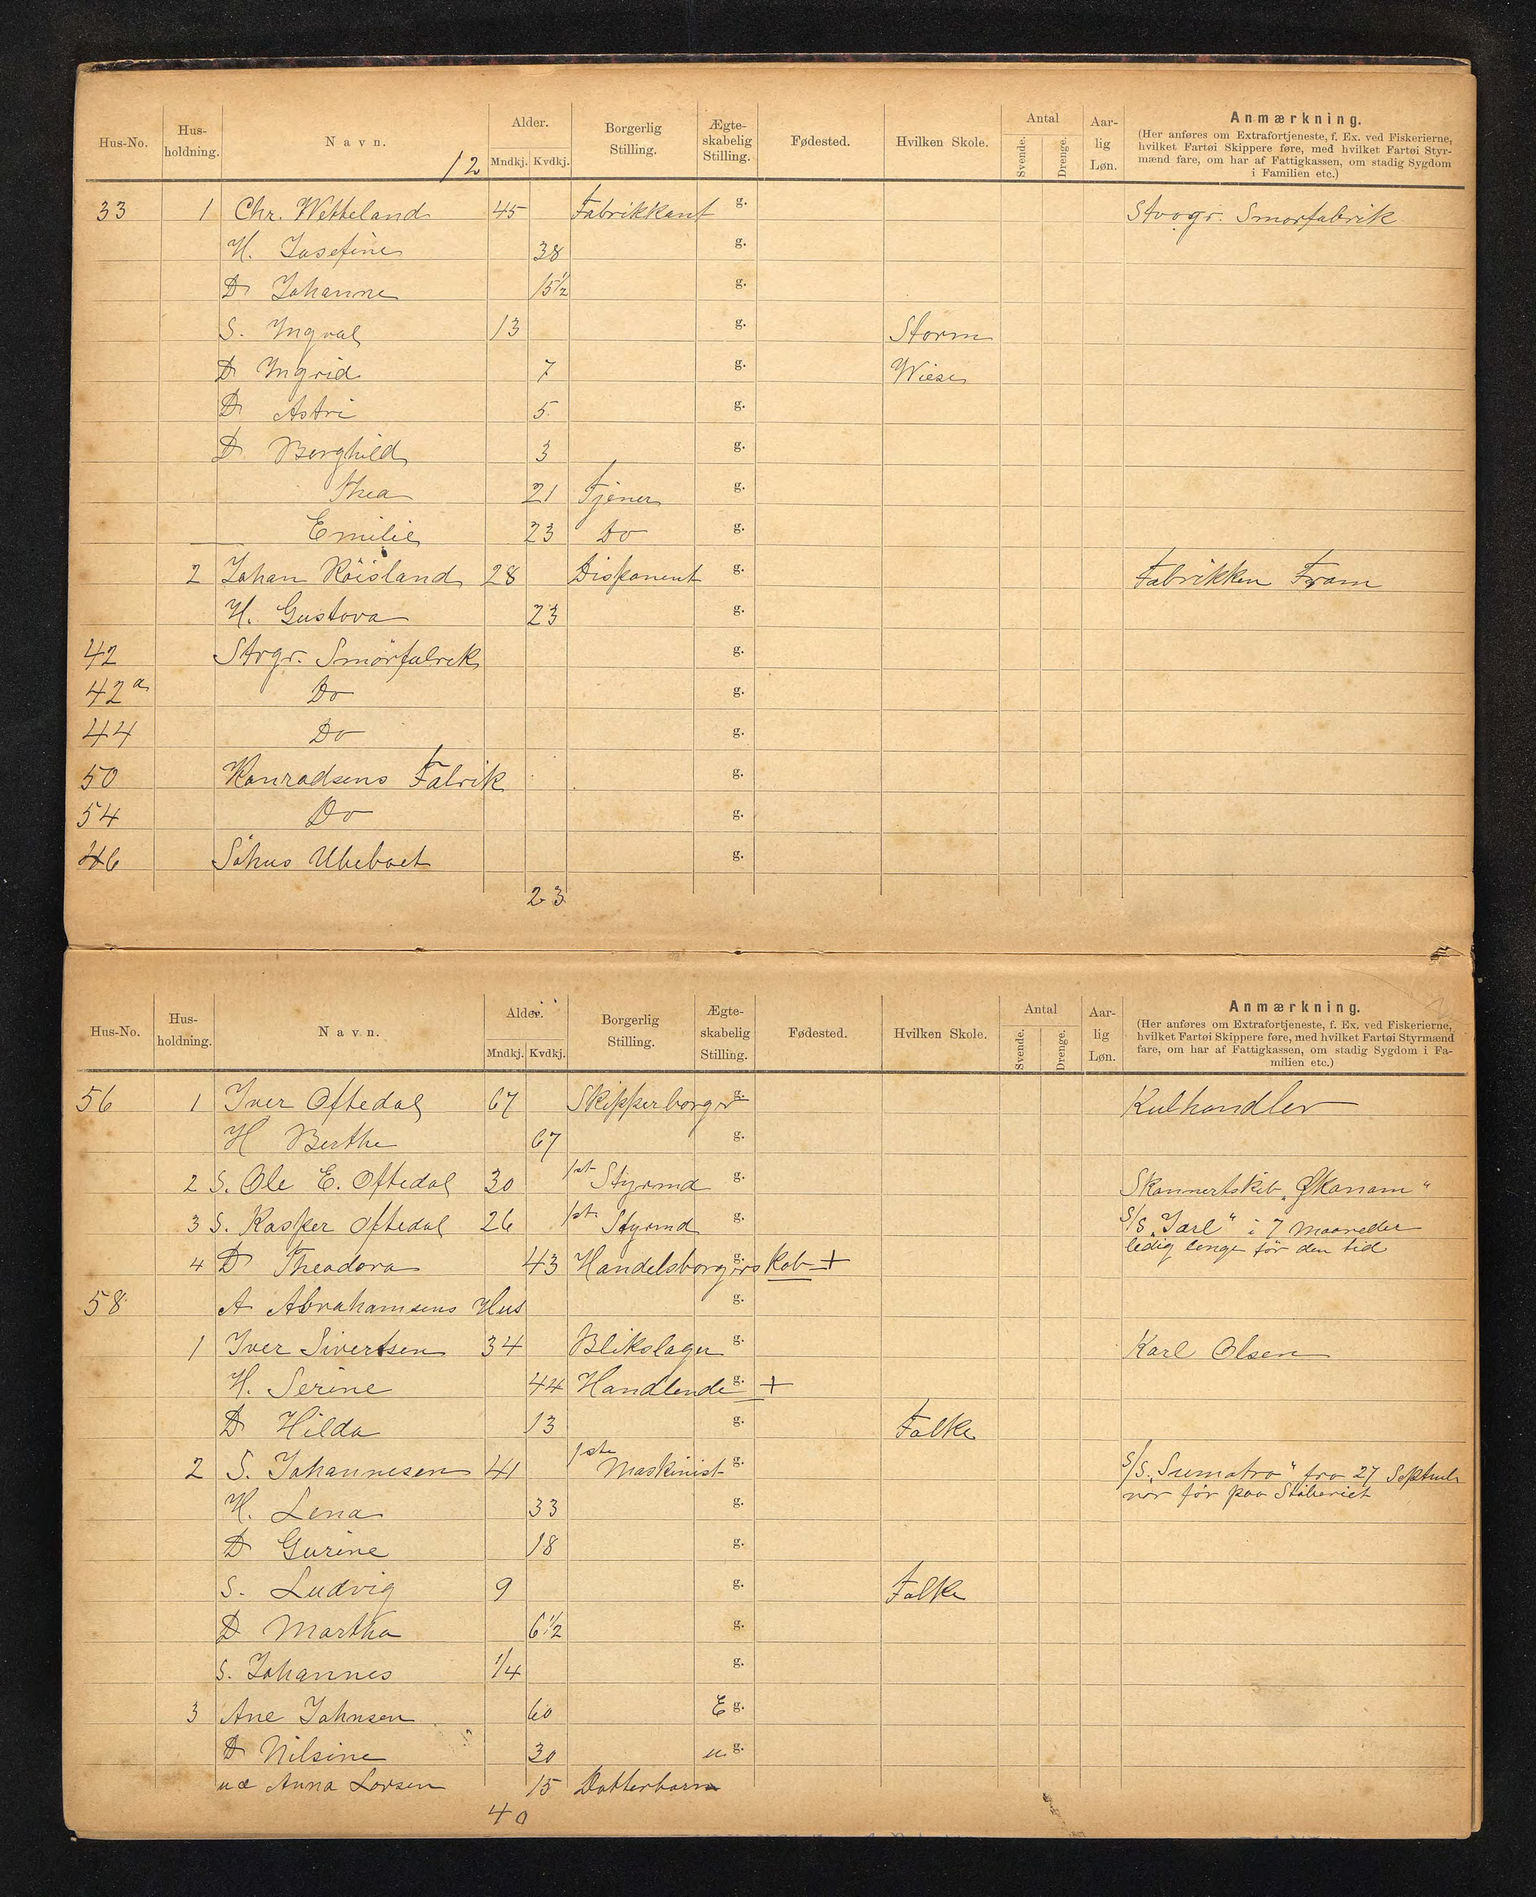 Hus-No. Hus-holdning. Navn. Alder. Mndkj. Kvdkj. Borgerlig Stilling. Ægte-skabelig Stilling. Fødested. Hvilken Skole. Antal Svende. Drenge. Aar-lig Løn. Anmærkning.
(Her anføres om Extrafortjeneste, f. Ex. ved Fiskerierne,
hvilket Fartøi Skippere føre, med hvilket Fartøi Styr-
mænd fare, om har af Fattigkassen, om stadig Sygdom
i Familien etc.)
12
33 1 Chr. Wetteland 45 Fabrikkant g. Stvgr. Smørfabrik
H. Josefine 38 g.
D Johanne 15 1/2 g.
S. Ingval 13 g. Storm
D Ingrid 7 g. Wiese
D Astri 5 g.
D Borghild 3 g.
Thea 21 Tjener g.
Emilie 23 Do g.
2 Johan Röisland 28 Disponent g. Fabrikken Fram
H. Gustava 23 g.
42 Stvgr. Smörfabrik g.
42 a Do g.
44 Do g.
50 Konradsens Fabrik g.
54 Do g.
46 Söhus Ubeboet g.
23
Hus-No. Hus-holdning. Navn. Alder. Mndkj. Kvdkj. Borgerlig Stilling. Ægte-skabelig Stilling. Fødested. Hvilken Skole. Antal Svende. Drenge. Aar-lig Løn. Anmærkning.
(Her anføres om Extrafortjeneste, f. Ex. ved Fiskerierne,
hvilket Fartøi Skippere føre, med hvilket Fartøi Styrmænd
fare, om har af Fattigkassen, om stadig Sygdom i Fa-
milien etc.)
56 1 Iver Oftedal 67 Skipperborger g. Kulhandler
H Berthe 67 g.
2 S. Ole E. Oftedal 30 1st Styrmd g. Skonnertskib „Økonom“
3 S. Kasper Oftedal 26 1st Styrmd g. S/S „Jarl“ i 7 Maaneder
ledig lenge för den tid
4 D Theodora 43 Handelsborgerskab + g.
58 A Abrahamsens Hus g.
1 Iver Sivertsen 34 Blikslager g. Karl Olsen
H. Serine 44 Handlende g. +
D Hilda 13 g. Falke
2 S. Johannesen 41 1ste Maskinist g. S/S „Sumatra“ fra 27 Septmb
var för paa Stöberiet
H. Lena 33 g.
D Gurine 18 g.
S. Ludvig 9 g. Falke
D Martha 6 1/2 g.
S. Johannes 1/4 g.
3 Ane Johnsen 60 E g.
D Nilsine 30 u g.
Anna Larsen 15 Datterbarn
40